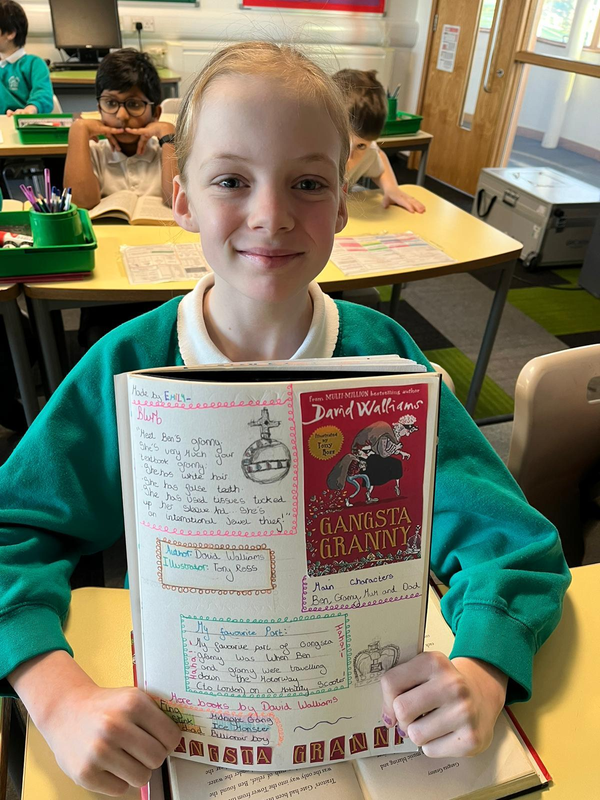 Made by EMILY-
Blurb
"Meet Ben's granny
She's very much your
textbook granny:
She has white hair
She has false teeth
She has used tissues tucked
up her sleeve and she's
an international jewel thief!"
From MULTI-MILLION bestselling author
David Walliams
Illustrated by
Tony Ross
GANGSTA
GRANNY
Author: David Walliams
Illustrator: Tony Ross
Main Characters
Ben, Granny, Mum and Dad
My favourite Part:
My favourite part of Gangsta
granny was when Ben
and granny were travelling
down the Motorway
(to London) on a Mobility Scooter
Haha!
Haha!
More books by David Walliams
Midnight Gang
Ice Monster
Billionair boy
GANGSTA GRANNY
Gangsta Granny